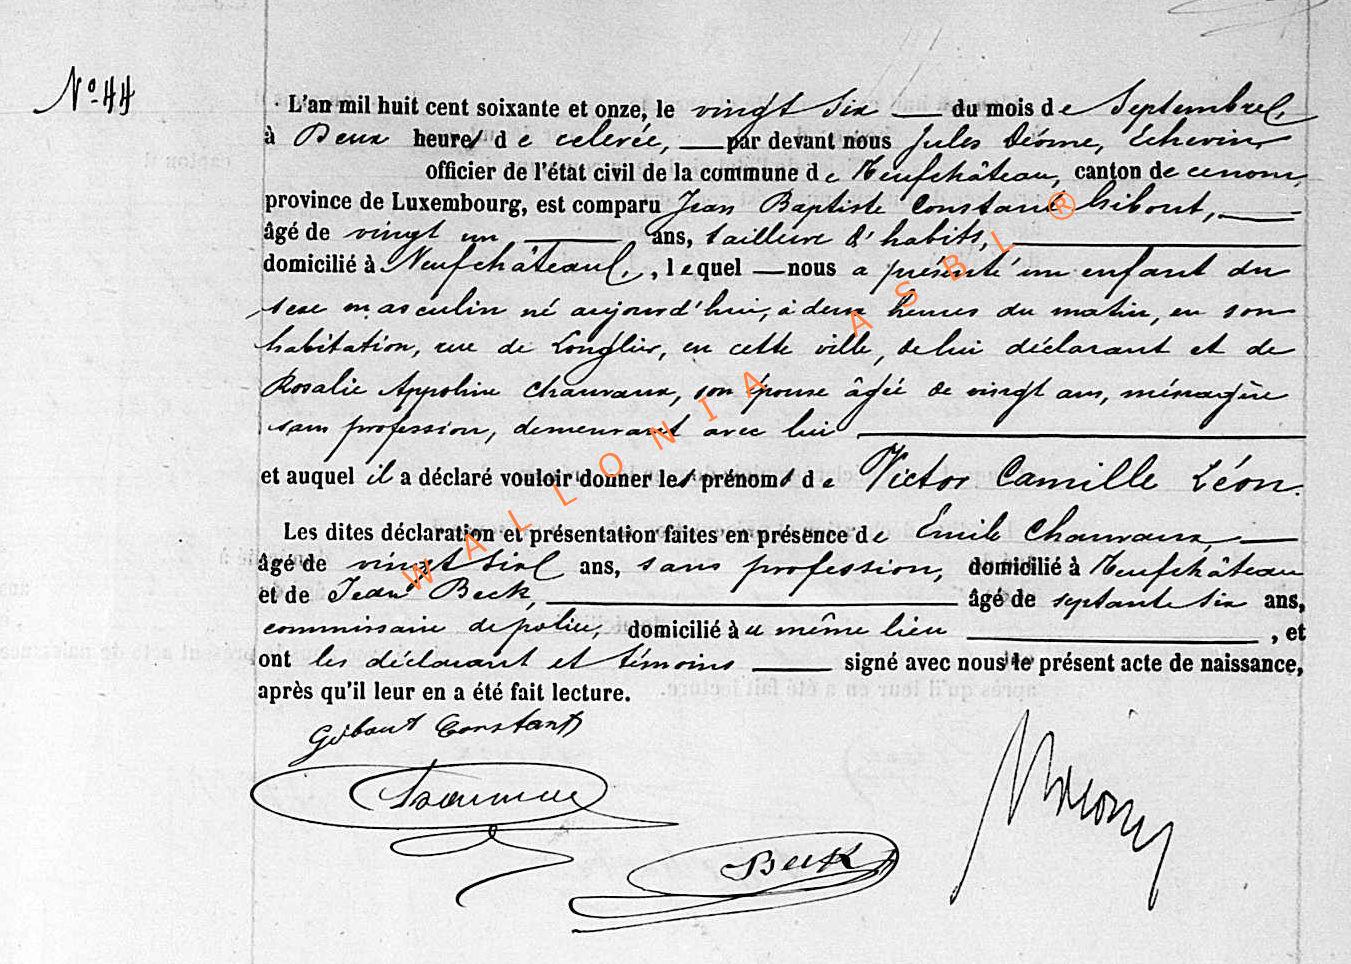 N° 44
L'an mil huit cent soixante et onze, le vingt six du mois de Septembre,
à Deux heures de relevée, par devant nous Jules Déome, Echevin
officier de l'état civil de la commune de Neufchâteau, canton de ce nom,
province de Luxembourg, est comparu Jean Baptiste Constant Gibout,
âgé de vingt un ans, tailleur d'habits,
domicilié à Neufchâteau, lequel nous a présenté un enfant du
sexe masculin né aujourd'hui, à deux heures du matin, en son
habitation, rue de Longlier, en cette ville, de lui déclarant et de
Rosalie Appoline Chauvaux, son épouse âgée de vingt ans, ménagère
sans profession, demeurant avec lui
et auquel il a déclaré vouloir donner les prénoms de Victor Camille Léon.
Les dites déclaration et présentation faites en présence de Emile Chauvaux,
âgé de vingt six ans, sans profession, domicilié à Neufchâteau
et de Jean Beck, âgé de septante six ans,
commissaire de police, domicilié à u même lieu , et
ont les déclarant et témoins signé avec nous le présent acte de naissance,
après qu'il leur en a été fait lecture.
Gibout Constant
Beck
WALLONIA ASBL ®